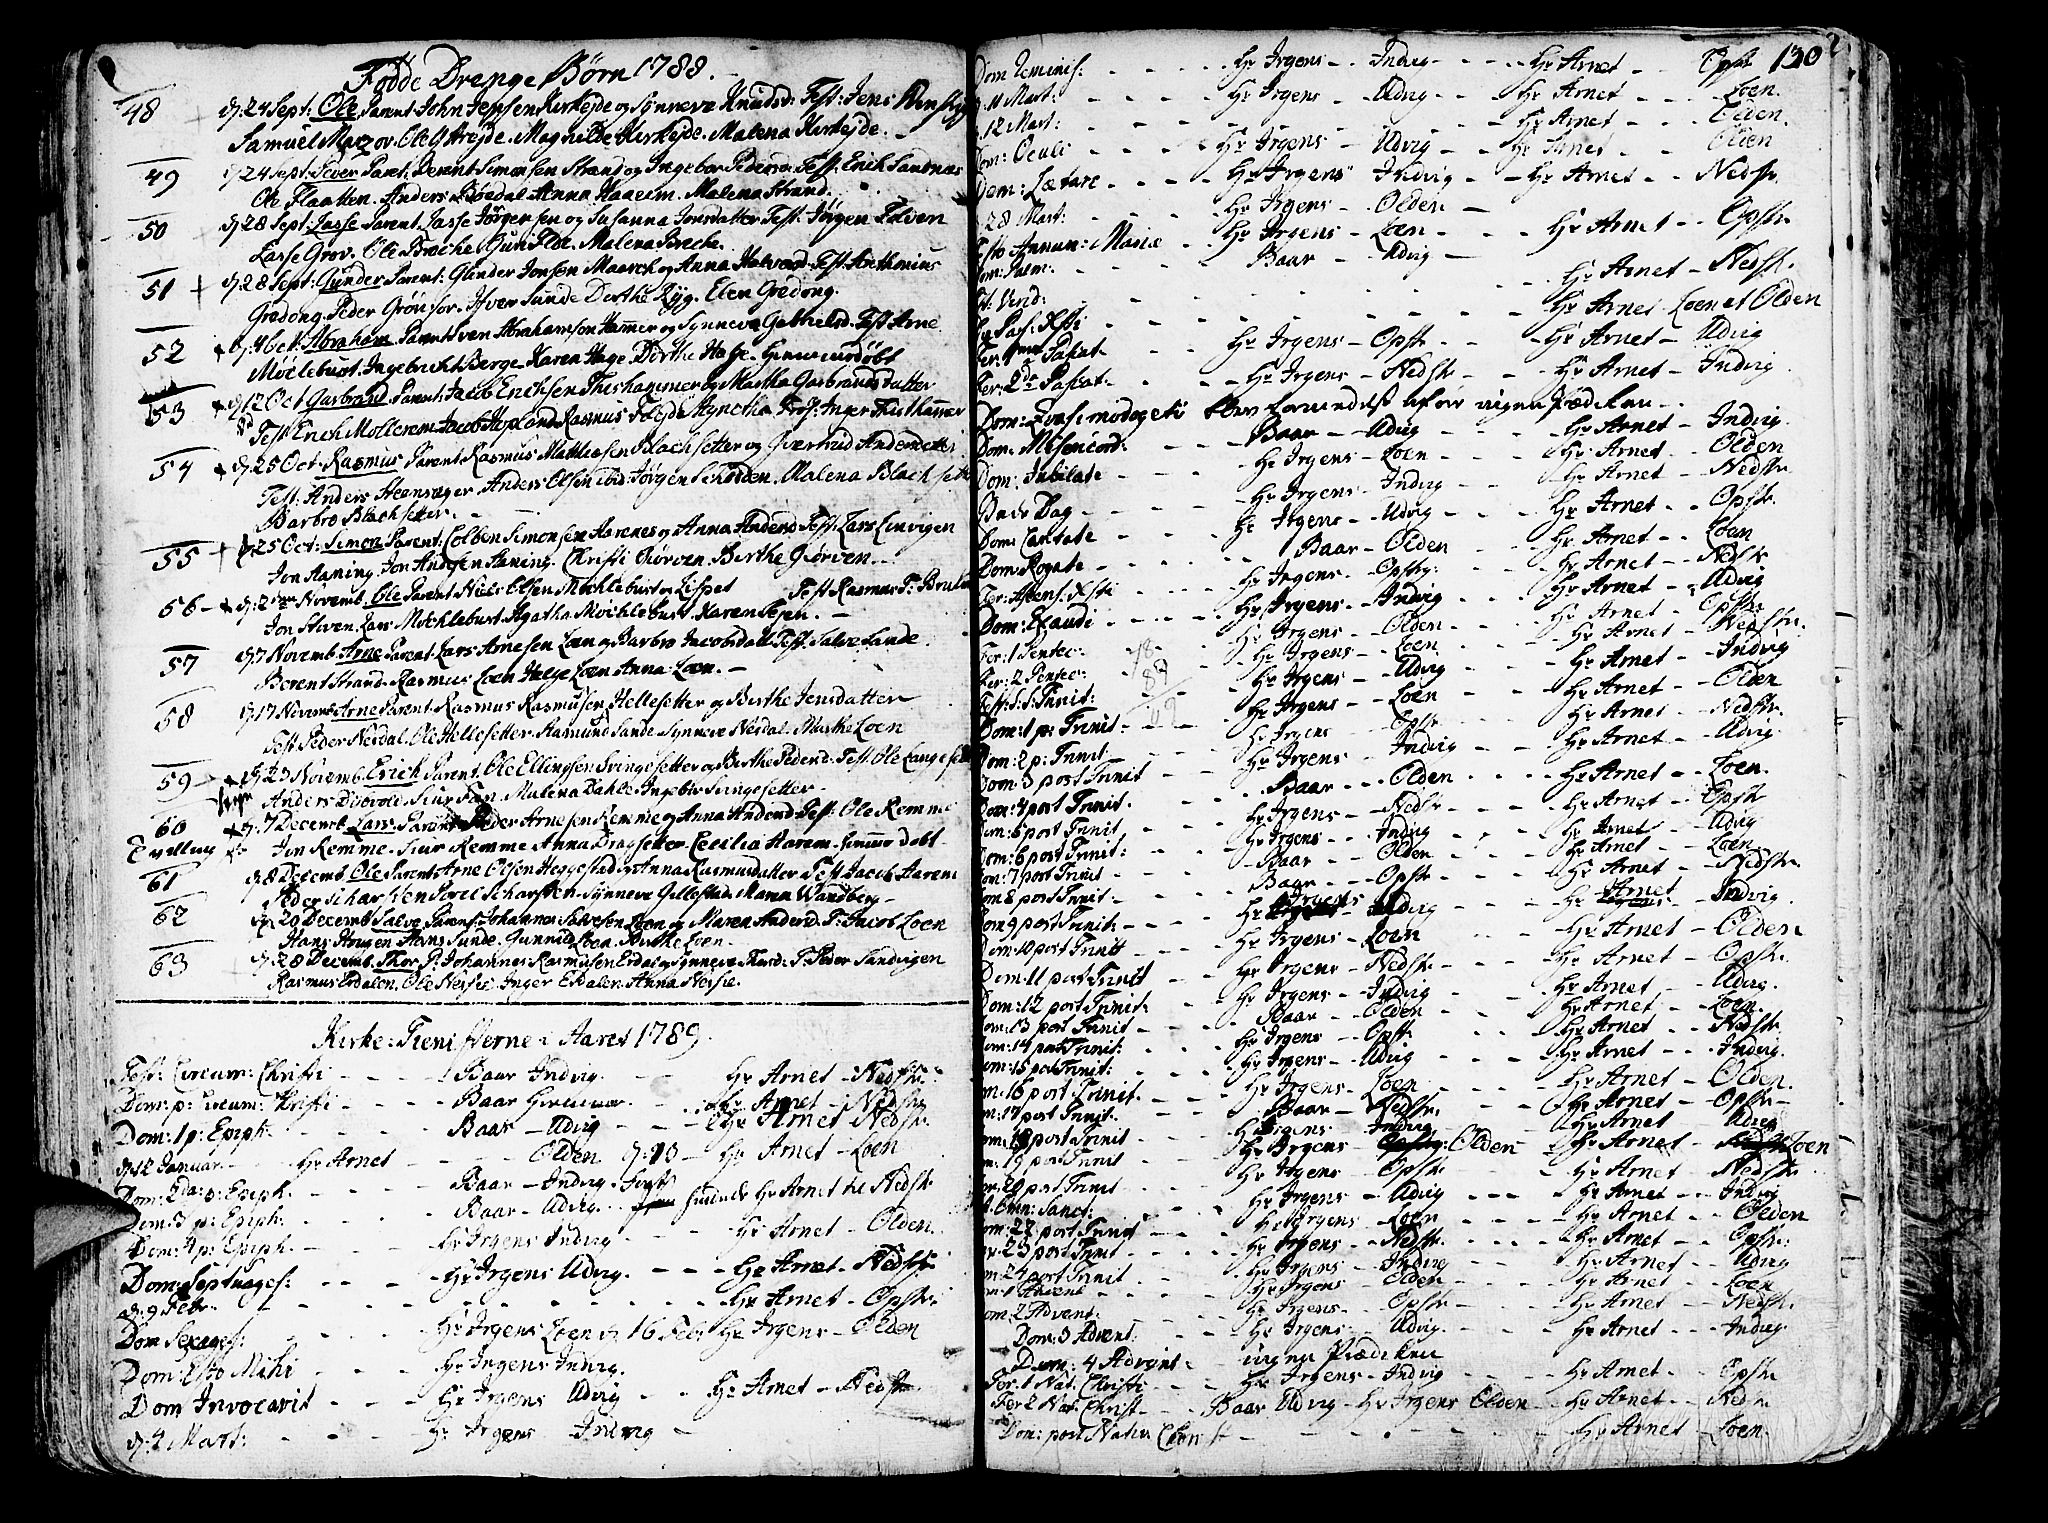 Fødde Drenge Børn 1788.
48 d. 24 Sept: Ole Parent John Jensen Kirkejde og Synneva Knudsd: Test: Jens
Samuel Ole Magnilde Kirkejde. Malena Kirkejde.
49 d. 24 Sept: Siver Parent. Berent Simonsen Strand og Ingebor Pedersd. Test. Erich Sandnæs
Ole Flaatten. Anders Bøedal Anna Haaeim. Malena Strand.
50 d. 28 Sept: Lasse Parent. Lasse Jørgensen og Susanna Jonsdatter Test: Jørgen Tolven
Lasse Grov. Ole Broche Malena Broche.
51 d. 28 Sept: Gunder Parent: Gunder Jonsen Maarch og Anna Halvord. Test: Anthonius
Grødong. Peder Iver Sunde Dorthe Ryg. Elen Grødong.
52 d. 4 Oct: Abraham Parent Sven Abrahamson Hammer og Synneva Gabrielsd. Test Arne
Møcleburst. Ingebricht Berge. Karen Hage. Dorthe Hage. Hiemmedøbt
53 d. 12 Oct Garbrand Parent. Jacob Erichsen Thishammer og Martha Garbrandsdatter
Test Erich Mollerem Jacob Hopland Rasmus Inger Thishammer
54 d. 25 Oct. Rasmus Parent. Rasmus Matthiesen Blachsetter og Andersdatter
Test: Anders Steensager. Anders Olsen ibid: Jørgen Malena Blachsetter
Barbro Blachsetter. -
55 d. 25 Oct: Simon Parent: Colben Simonsen Aarenes og Anna Andersd Test: Lars Linvigen
Jon Aaning. Jon Andersen Aaning. Christi Giørven. Berthe Giørven.
56 - d. 2 Novemb. Ole Parent Niels Olsen Møchlebust og Lisbet Test Rasmus T:
Jon Steven. Lars Møchlebust. Agatha Møchlebust. Karen -
57 d. 7 Novemb. Arne Parent. Lars Arnesen Loen og Barbro Jacobsdatt Test. Salve Sande
Berent Strand. Rasmus Loen Helge Loen Anna Loen. -
58 d. 17 Novemb. Arne Parent. Rasmus Rasmusen Hellesetter og Berthe Jensdatter
Test Peder Nesdal. Ole Hellesetter. Rasmus Sande. Synneve Nesdal. Marthe Loen
59 d. 23 Novemb. Erich Parent. Ole Ellingsen Svingesetter og Berthe Pedersd. Test. Ole Langesetter
Anders Malena Dahle. Ingebor Svingesetter.
60 d. 7 Decemb. Lars Parent Peder Arnesen Remme og Anna Andersd Test: Ole Remme
Tvilling Jon Remme. Siur Remme Anna Dragsetter. Cecilia Harem. hiemme dobt.
61 d. 8 Decemb. Ole Parent Arne Olsen Heggestad og Anna Rasmusdatter Test Jacob Aarenes
Peder Scharsten Scharsten. Synneve Gillestad Maria Wandberg -
62 d. 20 Decemb. Salve Parent Johannes Salvesen Loen og Maren Andersd. T: Jacob Loen
Hans Haugen Hans Sunde. Gunnild Loen. Berthe Loen.
63 d. 28 Decemb. Thor P: Johannes Rasmusen Erdal og Synneve Thord: T. Peder Sandvigen
Rasmus Erdalen. Ole Nesse. Inger Erdalen. Anna Nesse.
Kirke-Tienisterne i Aaret 1789.
Fest: Circum: Christi - - - Baar Indvig - - Hr Arnet - Nedstr.
Dom: p: Circum: Christi - - - Baar - - Hr Arnet - Nedstr
Dom: 1 p: Epiph. - - - Baar - Udvig - - Hr Arnet Nedstr.
d. 12 Januar. - - Hr Arnet - - Olden d. 13 - Hr Arnet - Loen
Dom: 2da p: Epiph. - - - Baar - Indvig
Dom: 3 p: Epiph: - - - Baar - Udvig. Hr Arnet Nedstr
Dom: 4 p: Epiph. - - - Hr Irgens Indvig - - Hr Arnet - Olden.
Dom: Septuages: - - - Hr Irgens Udvig. - - Hr Arnet - Nedstr.
d. 9 Febr. - - - Hr Arnet - Opstr.
Dom Sexages: - - - Hr Irgens Loen d. 16 Feb: Hr Irgens - Olden
Dom: Esto Mihi - - - Hr Irgens Indvig.
Dom Invocavit - - - Hr Irgens Udvig - - Hr Arnet - Nedstr.
d. 4 Mart: - - - Hr Irgens Indvig -
130
Dom Reminis: - - - Hr Irgens - Indvig - - - Hr Arnet - - Opstr
11 Mart: - - - Hr Irgens - Udvig - - Hr Arnet - - - Loen.
12 Mart: - - - Hr Arnet - - - Olden.
Dom: Oculi - - - Hr Irgens - Udvig - - Hr Arnet - - Olden
Dom: Lætare - - - Hr Irgens Indvig - - Hr Arnet - - Nedstr.
28 Mart: - - - Hr Irgens - Olden -
Festo Annun: Mariæ - - Hr Irgens - Loen - - - Hr Arnet - Opstr.
Dom: Palm: - - - Baar - Udvig - - - Hr Arnet - Nedstr.
Virid: - - - Hr Arnet - Loen et Olden
Pas: Xsti - - - Hr Arnet - Udvig
Fer: 1ma Pascat - - Hr Irgens - Opstr - - Hr Arnet - Indvig.
Fer: 2da Pascat. - - Hr Irgens - Nedstr
Dom: Quasimodogeti blev formedelst ingen Prædiken. -
Dom: Misericord: - - Baar - Udvig - - - Hr Arnet - Indvig.
Dom: Jubilate - - - Hr Irgens - Loen - - - Hr Arnet - Olden
Bede Dag - - - Hr Irgens - Indvig - - Hr Arnet - Nedstr.
Dom: Cantate - - - Hr Irgens - Udvig - - - Hr Arnet - - Opstr.
Dom: Rogate - - - Baar - Olden - - - Hr Arnet - Loen
Fer: Ascens. Xsti - - - Hr Irgens - Opstr: - - - Hr Arnet - Nedstr
Dom: Exaudi - - - Hr Irgens - Indvig - - Hr Arnet - Udvig
Fer: 1 Pentec: - - Hr Irgens - Olden - - Hr Arnet - Opstr
Fer: 2 Pentec: - - Hr Irgens - Loen - - - Hr Arnet - Nedstr.
Fest: S. S. Trinit: - - Hr Irgens - Udvig - - Hr Arnet - Indvig
Dom: 1 p: Trinit - - - Hr Irgens - Loen - - - Hr Arnet - - Olden
Dom: 2 p: Trinit - - - Hr Irgens - Opstr - - - Hr Arnet - Nedstr.
Dom: 3 post Trinit - - - Hr Irgens - Indvig - - Hr Arnet - Udvig.
Dom: 4 post Trinit. - - - Baar - - Olden - - - Hr Arnet - - Loen.
Dom: 5 post Trinit. - - - Hr Irgens - Nedstr - - - Hr Arnet - Opstr
Dom: 6 post Trinit: - - - Hr Irgens - Indvig - - - Hr Arnet - Udvig
Dom: 7 post Trinit - - - Baar - Olden - - Hr Arnet - - Loen
Dom: 8 post Trinit - - - Baar - Opstr - - Hr Arnet - - Nedstr.
Dom: 9 post Trinit: - - Hr Irgens - Udvig - - - Hr Arnet - Indvig.
Dom: 10 post Trinit - - - Hr Irgens - Loen - - - Hr Arnet - Olden
Dom: 11 post Trinit - - - Hr Irgens - Nedstr. - - Hr Arnet - Opstr.
Dom: 12 post Trinit: - - - Hr Irgens - Indvig - - Hr Arnet - Udvig.
Dom: 13 post Trinit - - - Baar - Olden - - Hr Arnet - Loen.
Dom: 14 post Trinit: - - - Hr Irgens - Opstr - - Hr Arnet - - Nedstr
Dom: 15 post Trinit: - - - Hr Irgens - Udvig - - - Hr Arnet - - Indvig.
Dom: 16 post Trinit. - - - Hr Irgens - Loen - - - Hr Arnet - Olden.
Dom: 17 post Trinit. - - - Baar - Nedstr. - - Hr Arnet - - Opstr
Dom: 18 post Trinit - - - Hr Irgens - Indvig - - Hr Arnet - Udvig
Dom: 19 post Trinit - - - Hr Irgens - Olden - - Hr Arnet - Loen
Dom: 20 post Trinit - - - Hr Irgens - Opstr - - Hr Arnet - - Nedstr
Omn: Sanct: - - - Hr Irgens - Udvig - - - Hr Arnet - - Indvig
Dom: 22 post Trinit - - - Hr Irgens - Loen - - - Hr Arnet - - Olden
Dom: 23 post Trinit - - - Hr Irgens - Nedstr. - - - Hr Arnet - - Opstr.
Dom: 24 post Trinit - - - Hr Irgens - Indvig - - - Hr Arnet - - Udvig
Dom: 1 Advent - - - Hr Irgens - Olden - - Hr Arnet - - Loen
Dom: 2 Advent: - - - Hr Irgens - Opstr - - - Hr Arnet - - Nedstr.
Dom: 3 Advent: - - Hr Irgens - Udvig. - - - Hr Arnet - - Indvig
Dom: 4 Advent - - ingen Prædiken
Fer: 1 Nat. Christi - - - Hr Irgens - Indvig - - - Hr Arnet - - Opstr
Fer 2 Nat: Christ - - Baar Udvig - Hr Irgens Olden - Hr Arnet - - Nedstr.
Dom: post Nativ Christ - - - Hr Arnet - Loen.